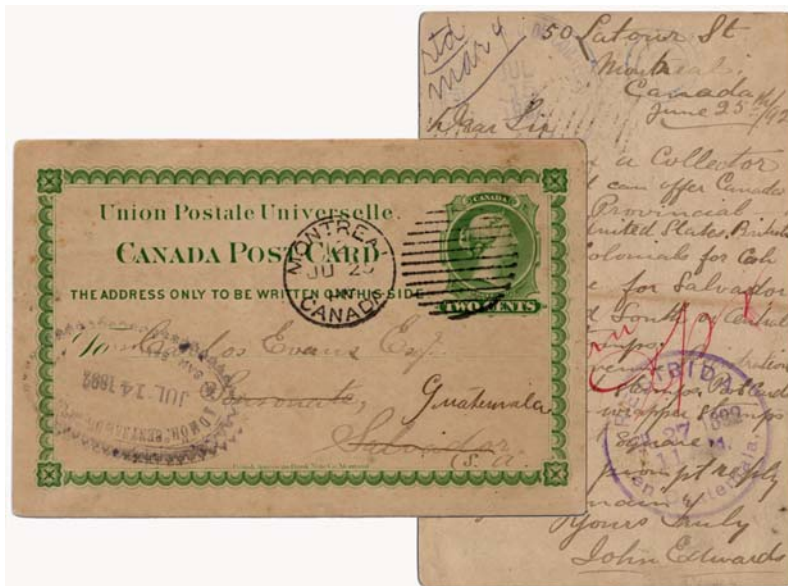 Union Postale Universelle.
CANADA POST CARD
THE ADDRESS ONLY TO BE WRITTEN ON THIS SIDE
CANADA
TWO CENTS
MONTREAL
JU 25
CANADA
Carlos Evans Esq.
Sonsonate,
Guatemala
Salvador
(S. a.
JUL 14 1892
std
mar 4
50 Latour St
Montreal,
Canada
June 25th/92
Dear Sir
a Collector
can offer Canada
Provincial
United States, British
Colonials for Cash
for Salvador
South or Central
Stamps.
wrapper Stamps
Square
prompt reply
Yours Truly
John Edwards
RECIBIDA
27 1892
11 M.
en Guatemala.